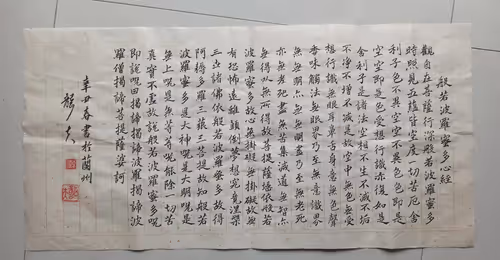 般若波羅蜜多心經
觀自在菩薩行深般若波羅蜜多
時照見五蘊皆空度一切苦厄舍
利子色不異空空不異色色即是
空空即是色受想行識亦復如是
舍利子是諸法空相不生不滅不垢
不淨不增不減是故空中無色無受
想行識無眼耳鼻舌身意無色聲
香味觸法無眼界乃至無意識界
無無明亦無無明盡乃至無老死
亦無老死盡無苦集滅道無智亦
無得以無所得故菩提薩埵依般若
波羅蜜多故心無掛礙無掛礙故無
有恐怖遠離顛倒夢想究竟涅槃
三世諸佛依般若波羅蜜多故得
阿耨多羅三藐三菩提故知般若
波羅蜜多是大神呪是大明呪是
無上呪是無等等呪能除一切苦
真實不虛故說般若波羅蜜多呪
即說呪曰揭諦揭諦波羅揭諦波
羅僧揭諦菩提薩婆訶
辛丑春書於蘭州